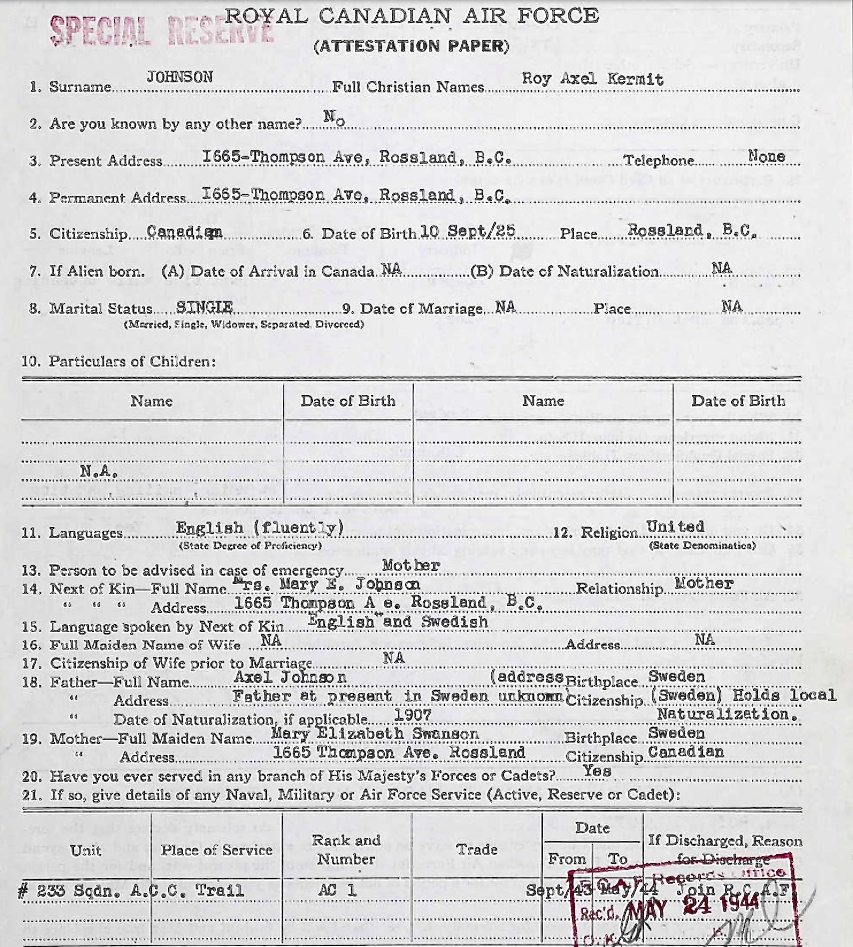 SPECIAL RESERVE
ROYAL CANADIAN AIR FORCE
(ATTESTATION PAPER)
1. Surname JOHNSON Full Christian Names Roy Axel Kermit
2. Are you known by any other name? No
3. Present Address I665-Thompson Ave, Rossland, B.C. Telephone None
4. Permanent Address I665-Thompson Ave, Rossland, B.C.
5. Citizenship Canadian 6. Date of Birth 10 Sept/25 Place Rossland, B.C.
7. If Alien born. (A) Date of Arrival in Canada NA (B) Date of Naturalization NA
8. Marital Status SINGLE 9. Date of Marriage NA Place NA
(Married, Single, Widower, Separated, Divorced)
10. Particulars of Children:
Name Date of Birth Name Date of Birth
N.A.
11. Languages English (fluently) 12. Religion United
(State Degree of Proficiency) (State Denomination)
13. Person to be advised in case of emergency Mother
14. Next of Kin—Full Name Mrs. Mary E. Johnson Relationship Mother
" " " Address 1665 Thompson A e. Rossland, B.C.
15. Language spoken by Next of Kin English and Swedish
16. Full Maiden Name of Wife NA Address NA
17. Citizenship of Wife prior to Marriage NA
18. Father—Full Name Axel Johnson (address Birthplace Sweden
" Address Father at present in Sweden unknown) Citizenship (Sweden) Holds local
" Date of Naturalization, if applicable 1907 Naturalization.
19. Mother—Full Maiden Name Mary Elizabeth Swanson Birthplace Sweden
" Address 1665 Thompson Ave. Rossland Citizenship Canadian
20. Have you ever served in any branch of His Majesty's Forces or Cadets? Yes
21. If so, give details of any Naval, Military or Air Force Service (Active, Reserve or Cadet):
Unit Place of Service Rank and Number Trade Date From To If Discharged, Reason for Discharge
# 233 Sqdn. A.C.C. Trail AC 1 Sept/43 May/44 Join R.C.A.F
R.C.A.F. Records Office
Rec'd. MAY 24 1944
O.K.